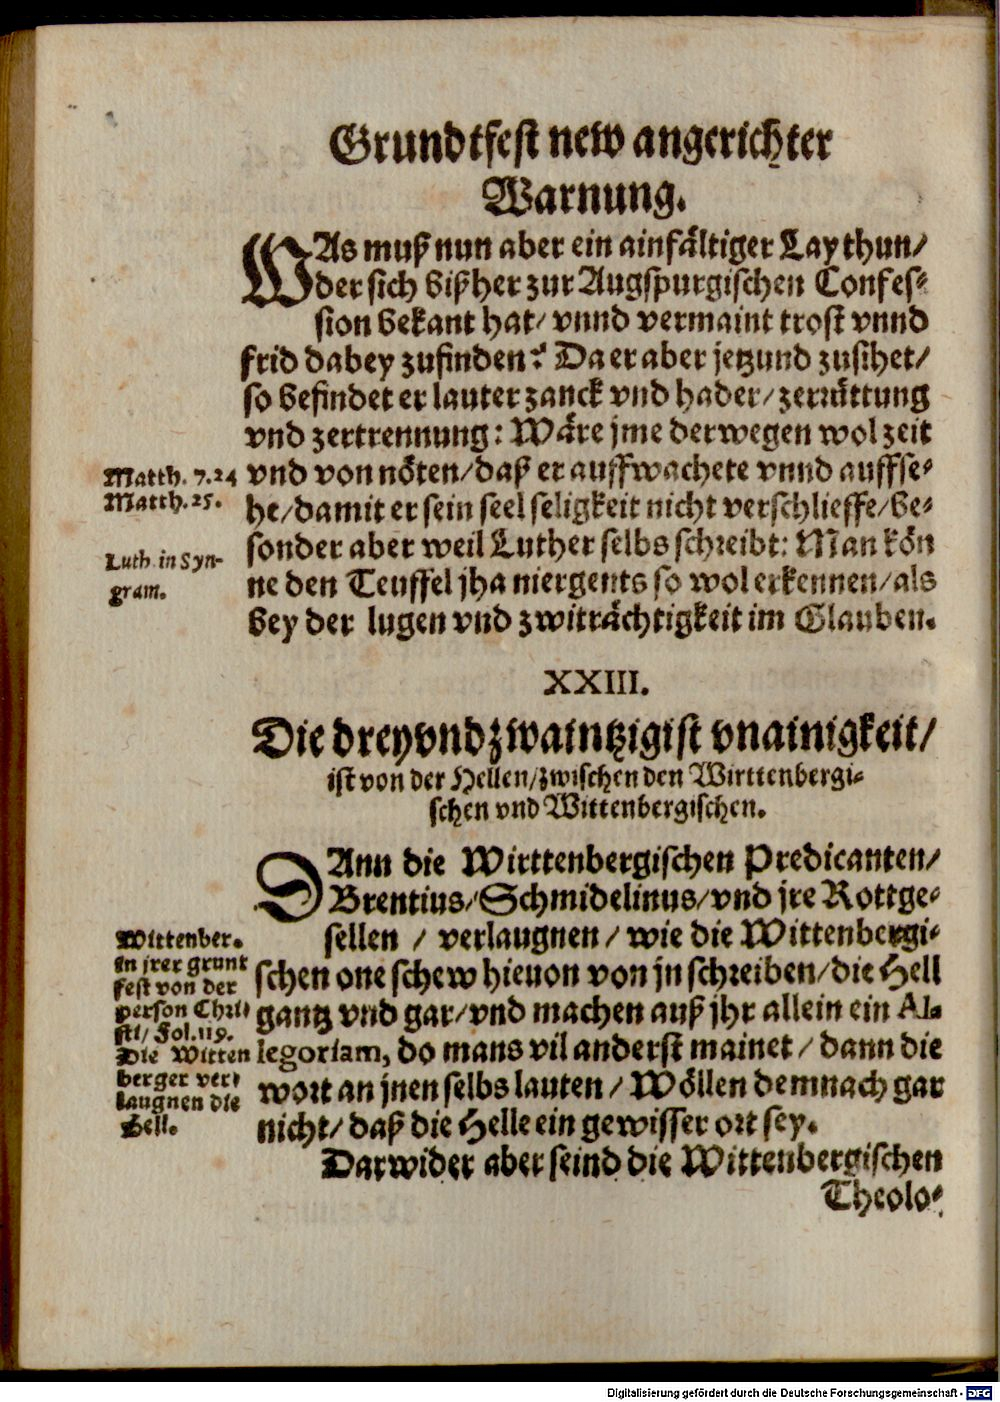 Grundtfest new angerichter
Warnung.
WAs muß nun aber ein ainfältiger Lay thun/
der sich bißher zur Augspurgischen Confes-
sion bekant hat/ vnnd vermaint trost vnnd
frid dabey zufinden? Da er aber jetzund zusihet/
so befindet er lauter zanck vnd hader/ zerrüttung
vnd zertrennung: Wäre jme derwegen wol zeit
Matth. 7.24
vnd von nöten/ daß er auffwachete vnnd auffse-
Matth. 25.
he/ damit er sein seel seligkeit nicht verschlieffe/ be-
sonder aber weil Luther selbs schreibt: Man kön
Luth. in Syn-
gram.
ne den Teuffel jha niergents so wol erkennen/ als
bey der lugen vnd zwiträchtigkeit im Glauben.
XXIII.
Die dreyvndzwaintzigist vnainigkeit/
ist von der Hellen/ zwischen den Wirttenbergi-
schen vnd Wittenbergischen.
DAnn die Wirttenbergischen Predicanten/
Brentius/ Schmidelinus/ vnd jre Rottge-
sellen / verlaugnen / wie die Wittenbergi-
schen one schew hieuon von jn schreiben/ die Hell
gantz vnd gar/ vnd machen auß jhr allein ein Al-
legoriam, do mans vil anderst mainet / dann die
wort an jnen selbs lauten / Wöllen demnach gar
nicht/ daß die Helle ein gewisser ort sey.
Wittenber.
in jrer grunt
fest von der
person Chri-
sti/ Fol. 119.
Die Witten
berger ver-
laugnen die
Hell.
Darwider aber seind die Wittenbergischen
Theolo-
Digitalisierung gefördert durch die Deutsche Forschungsgemeinschaft - DFG